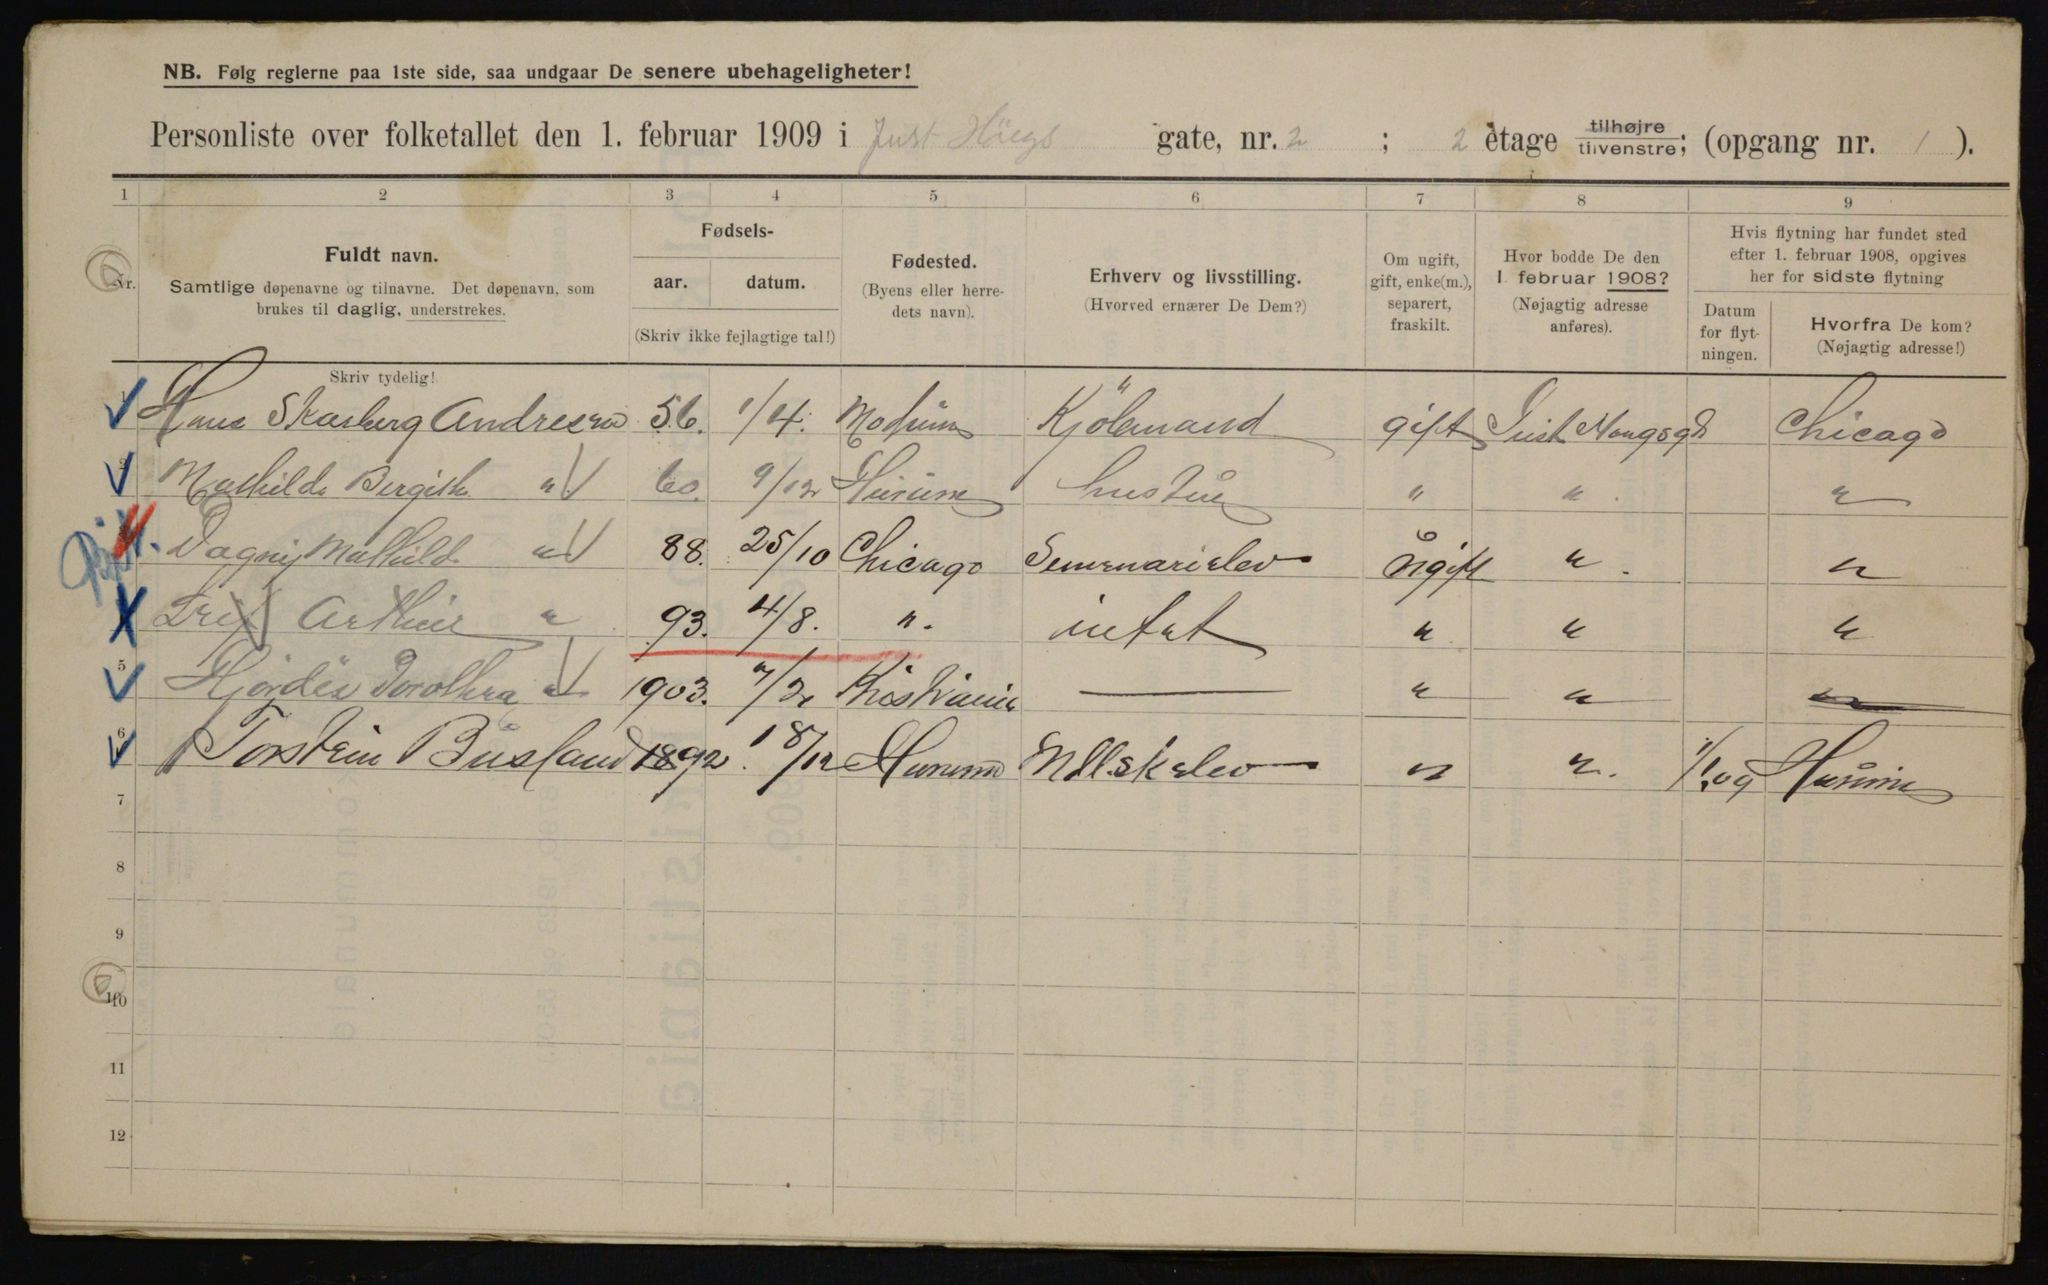 NB. Følg reglerne paa 1ste side, saa undgaar De senere ubehageligheter!
Personliste over folketallet den 1. februar 1909 i Just Høegs gate, nr. 2 ; 2 etage tilhøjre tilvenstre; (opgang nr. 1 ).
1 2 3 4 5 6 7 8 9
Nr.
Fuldt navn.
Samtlige døpenavne og tilnavne. Det døpenavn, som
brukes til daglig, understrekes.
Skriv tydelig!
Fødsels-
aar. datum.
(Skriv ikke fejlagtige tal!)
Fødested.
(Byens eller herre-
dets navn).
Erhverv og livsstilling.
(Hvorved ernærer De Dem?)
Om ugift,
gift, enke(m.),
separert,
fraskilt.
Hvor bodde De den
1. februar 1908?
(Nøjagtig adresse
anføres).
Hvis flytning har fundet sted
efter 1. februar 1908, opgives
her for sidste flytning
Datum
for flyt-
ningen.
Hvorfra De kom?
(Nøjagtig adresse!)
Hans Skarberg Andresen 56. 1/4. Modum Kjöbmand gift Chicago
Mathilde Bergithe " 60. 9/12 Hurum hustru " " "
Dagny Mathild " 88. 25/10 Chicago Semenarielev Ugift " "
Arthur " 93. 4/8. " intet " " "
5 Hjördis Dorothea " 1903. 7/2 Kristiania — " "
6 Torstein Busland 1892. 18/12 Hurum Mll.skelev " " 1/1.09 Hurum
7
8
9
10
11
12